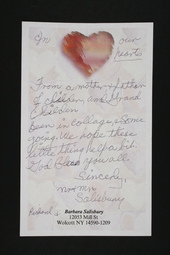 In our
hearts
From a mother of ten
children and Grand
Children
been in college, some
going, we hope these
little things help a bit.
God Bless you all.
Sincerly,
Salisbury
Barbara Salisbury
12053 Mill St
Wolcott NY 14590-1269